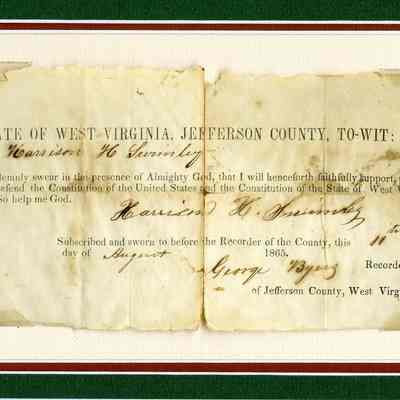 ATE OF WEST VIRGINIA, JEFFERSON COUNTY, TO-WIT:
Harrison H Swimley
lemnly swear in the presence of Almighty God, that I will henceforth faithfully support,
efend the Constitution of the United States and the Constitution of the State of West V
So help me God.
Harrison H. Swimley
Subscribed and sworn to before the Recorder of the County, this 11th
day of August 1865.
George Byers Recorde
of Jefferson County, West Virg